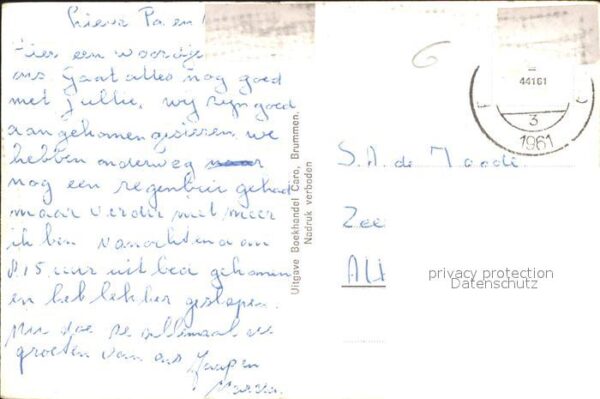 Liever Pa en
Hier een woordje
ons. Gaat alles nog goed
met jullie, wij zijn goed
aangekomen gisteren. we
hebben onderweg
nog een regenbui gehad
maar verder niet meer
ik ben vanochtend om
8.15 uur uit bed gekomen
en heb lekker geslapen.
Nu doe ze allemaal de
groeten van ons
Jaap en
Uitgave Boekhandel Caro, Brummen.
Nadruk verboden
6
44161
3
1961
S. A. de
Zee
privacy protection
Datenschutz